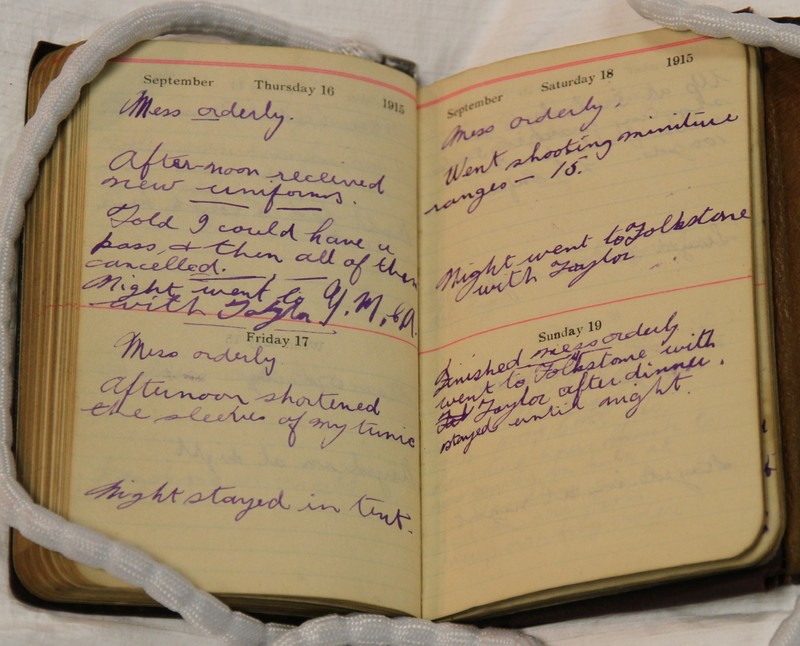 September Thursday 16 1915
Mess orderly.
After-noon received
new uniforms.
Told I could have a
pass, & then all of them
cancelled.
Night went to Y.M.C.A.
with Taylor
Friday 17
Mess orderly
Afternoon shortened
the sleeves of my tunic
Night stayed in tent.
September Saturday 18 1915
Mess orderly.
Went shooting miniture
ranges - 15.
Night went to Folkstone
with Taylor
Sunday 19
Finished mess orderly
went to Folkstone with
Taylor after dinner.
stayed until night.